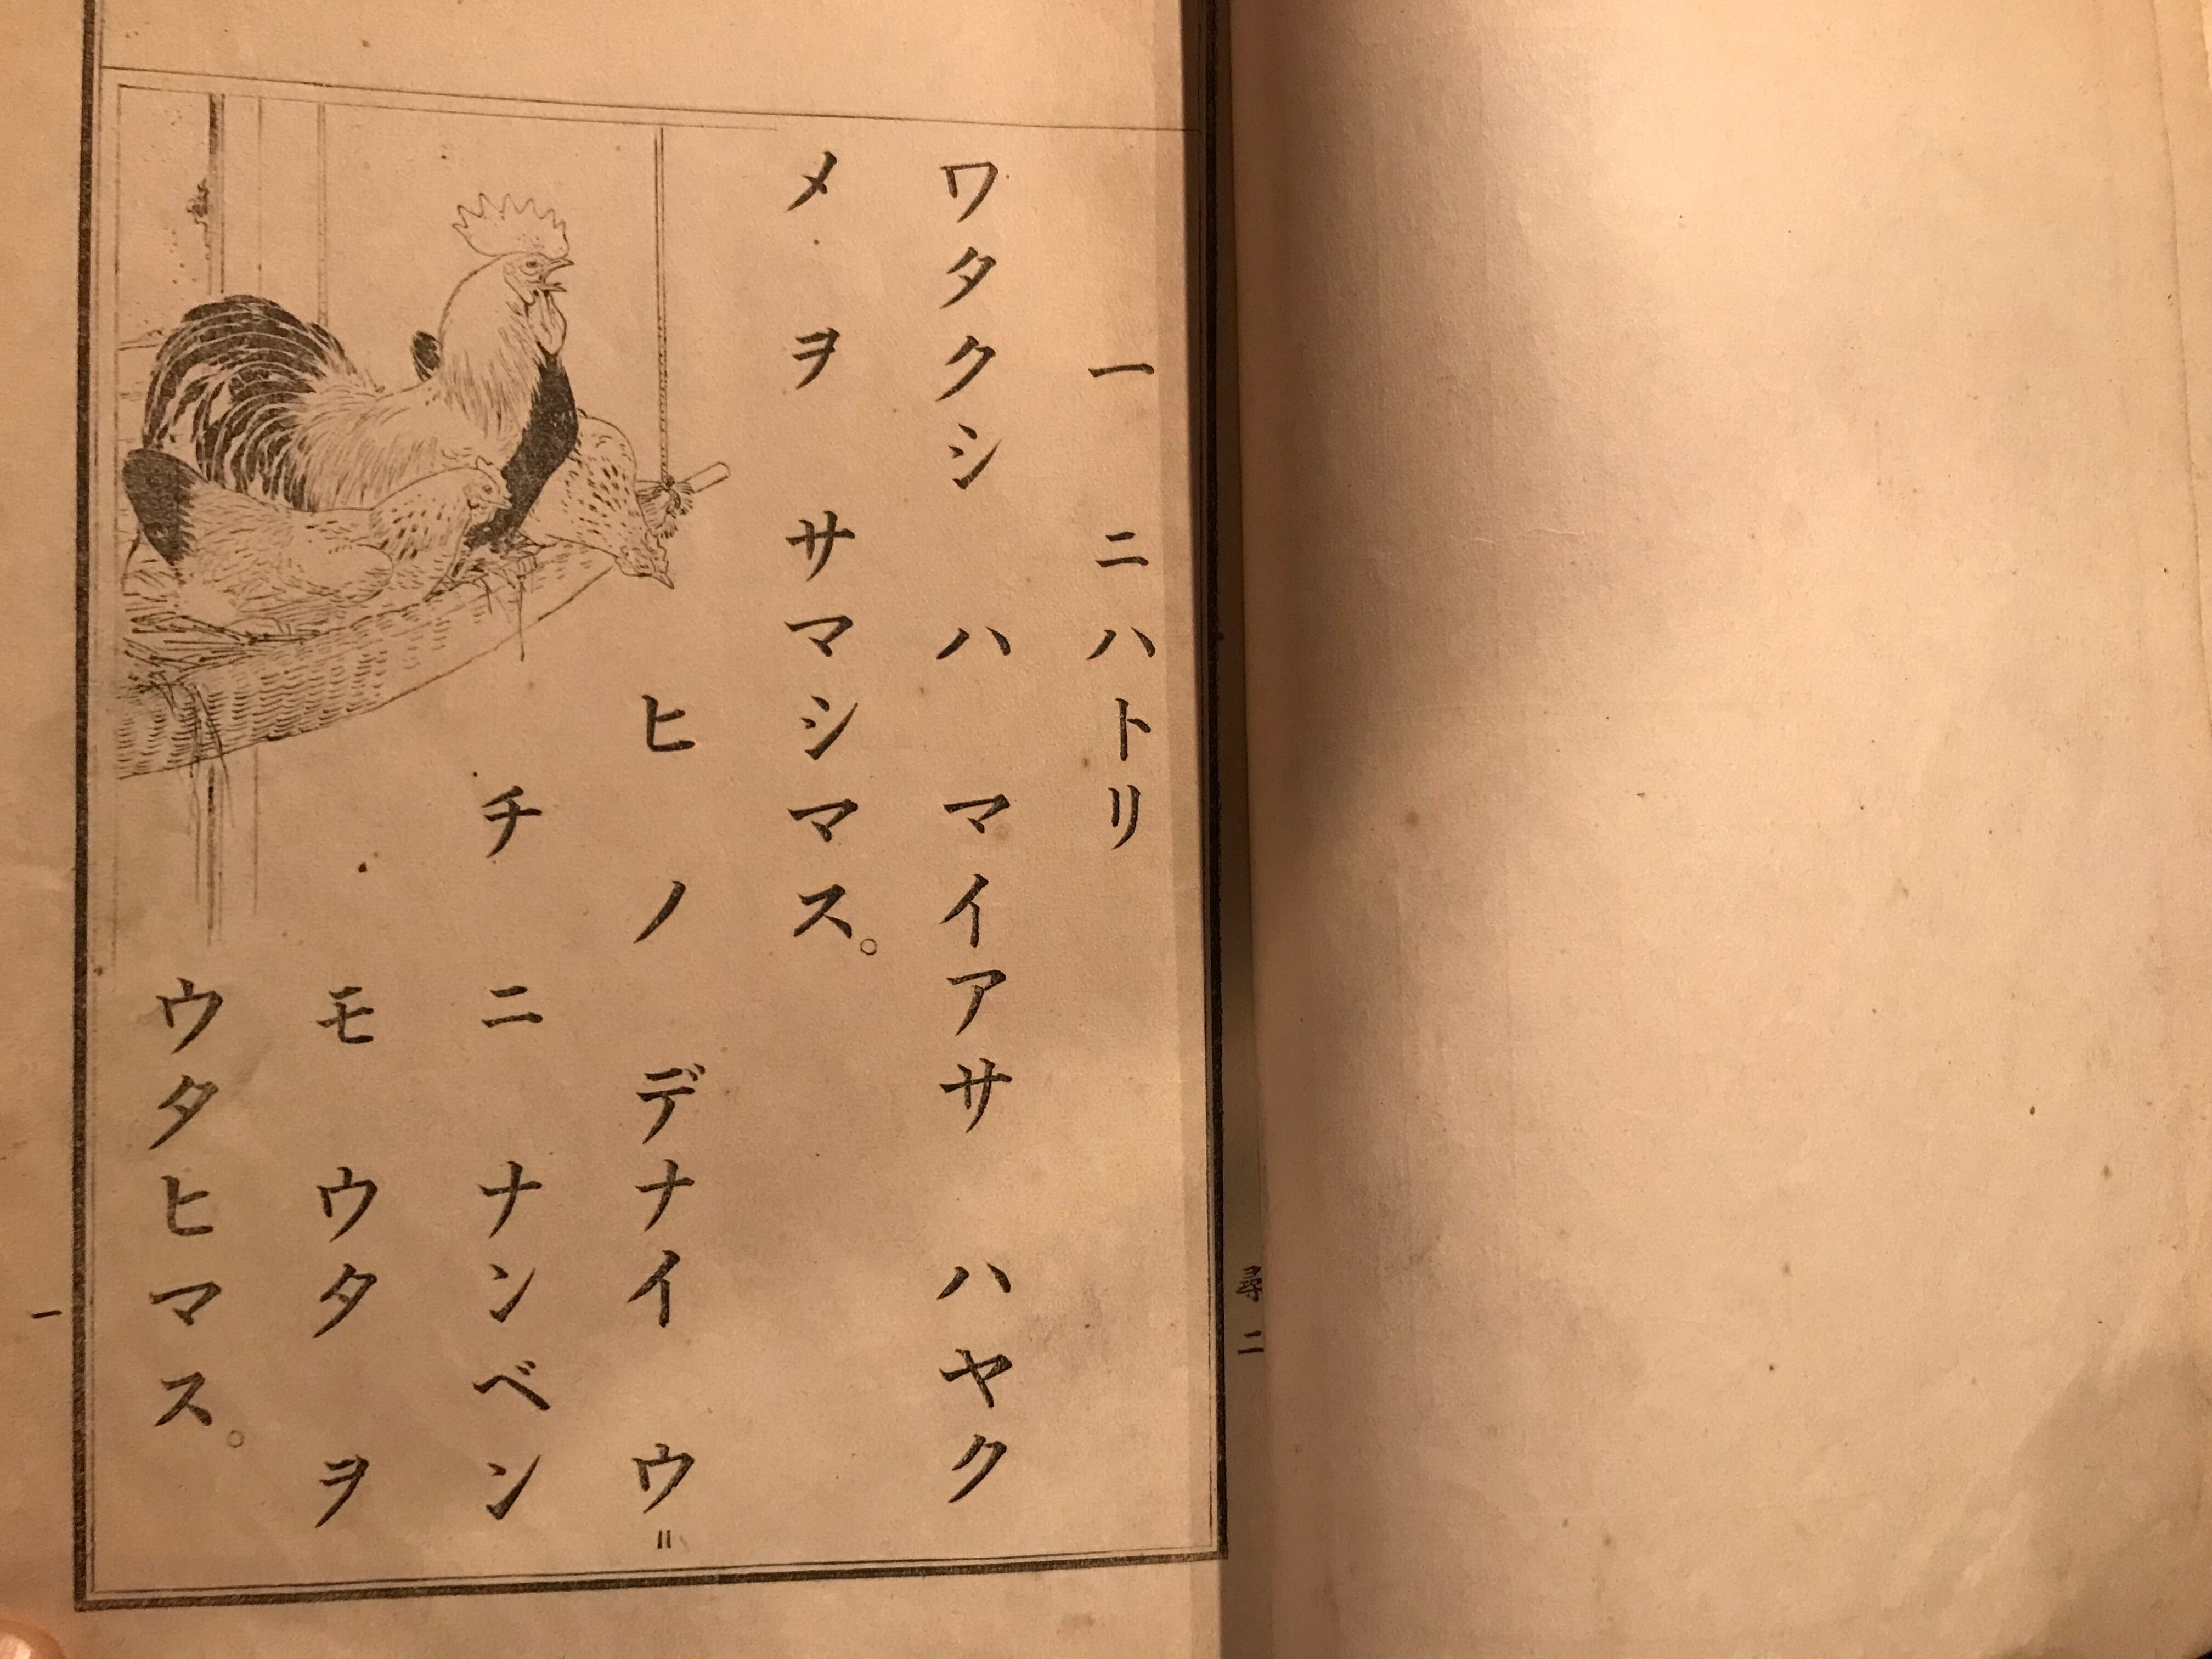 尋二
一 ニハトリ
ワタクシ ハ マイアサ ハヤク
メ ヲ サマシマス。
ヒ ノ デナイ ウ゠
チ ニ ナンベン
モ ウタ ヲ
ウタヒマス。
一